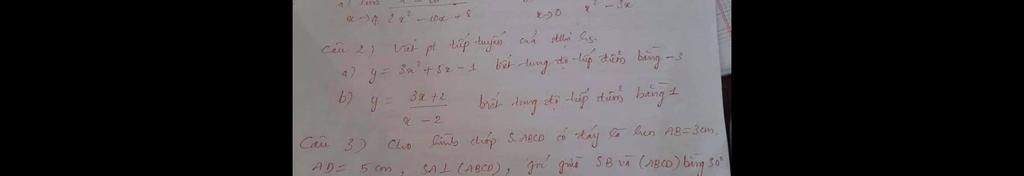 x→4 2x² - 10x + 8 x→0 x² - 3x
Câu 2) Viết pt tiếp tuyến của đthị hs.
a) y = 3x² + 5x - 1 biết tung độ tiếp điểm bằng -3
b) y = 3x + 2 / x - 2 biết tung độ tiếp điểm bằng 1
Câu 3) Cho hình chóp S.ABCD có đáy là hcn AB = 3cm,
AD = 5 cm, SA⊥(ABCD), góc giữa SB và (ABCD) bằng 30°